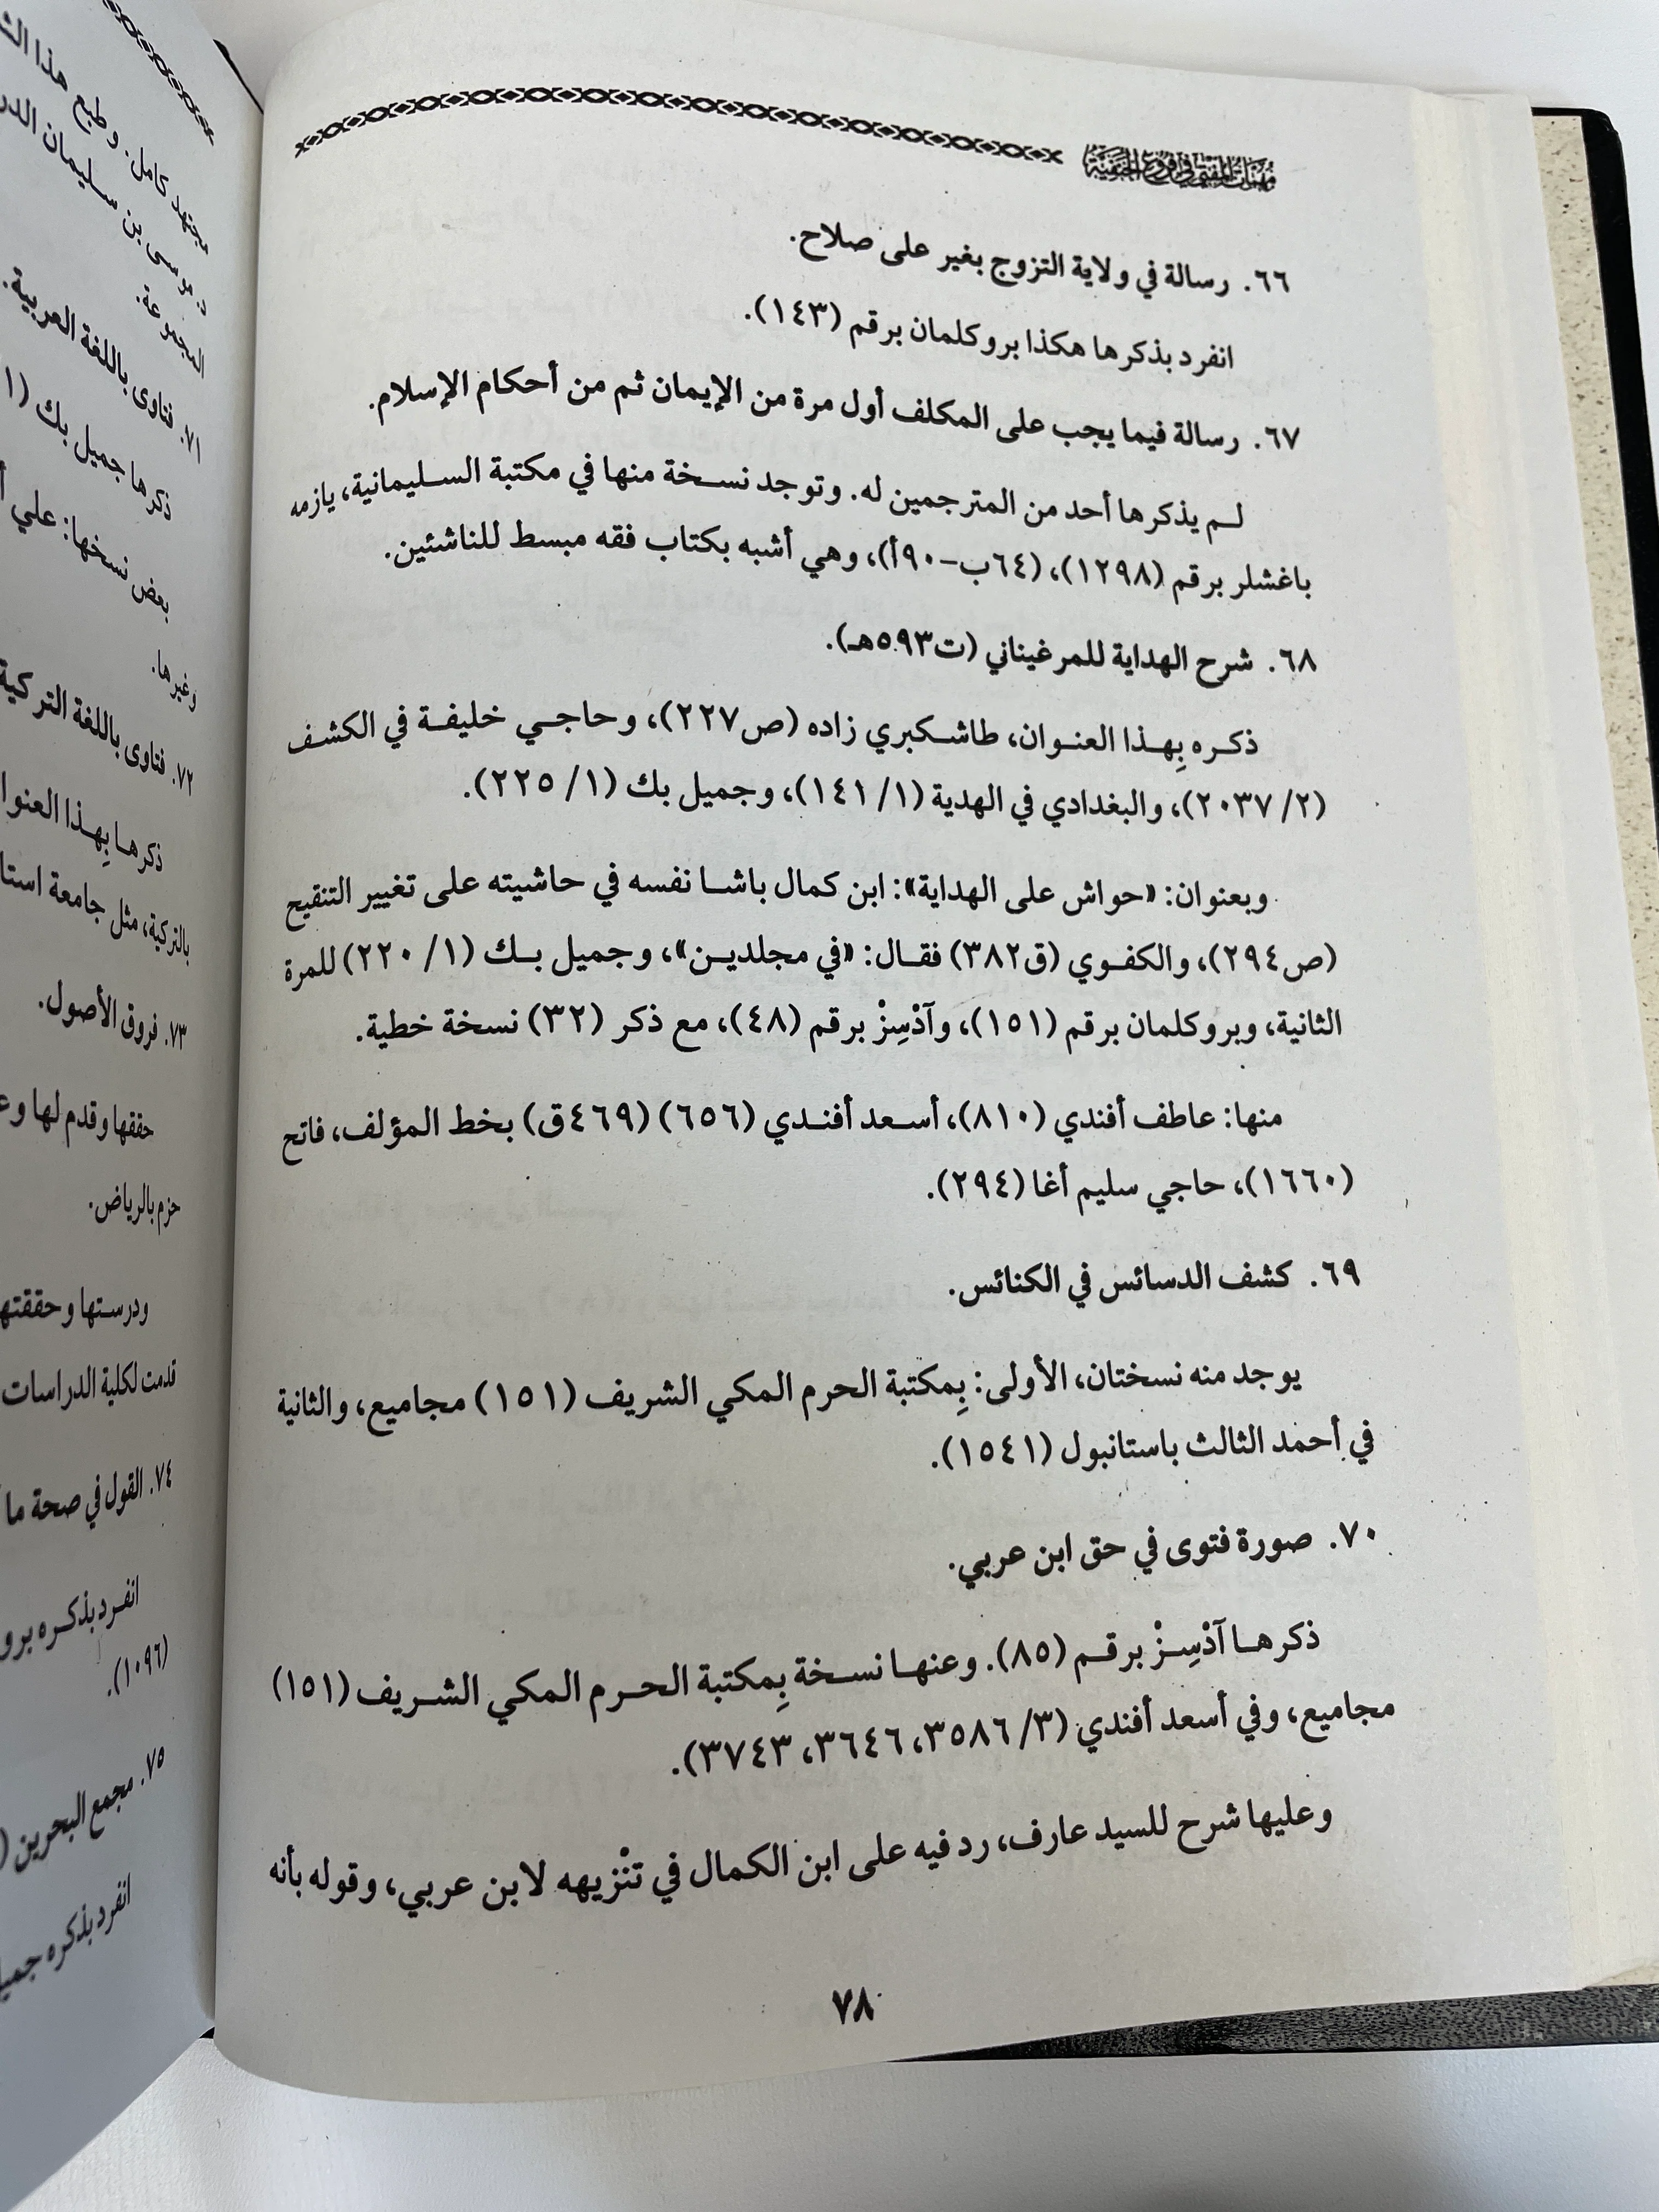 مهمات المفتي في فروع الحنفية
٦٦. رسالة في ولاية التزوج بغير على صلاح.
انفرد بذكرها هكذا بروكلمان برقم (١٤٣).
٦٧. رسالة فيما يجب على المكلف أول مرة من الإيمان ثم من أحكام الإسلام.
لم يذكرها أحد من المترجمين له. وتوجد نسخة منها في مكتبة السليمانية، يازمه
باغشلر برقم (١٢٩٨)، (٦٤ب-٩٠أ)، وهي أشبه بكتاب فقه مبسط للناشئين.
٦٨. شرح الهداية للمرغيناني (ت٥٩٣هـ).
ذكره بِهذا العنوان، طاشكبري زاده (ص٢٢٧)، وحاجي خليفة في الكشف
(٢/ ٢٠٣٧)، والبغدادي في الهدية (١/ ١٤١)، وجميل بك (١/ ٢٢٥).
وبعنوان: «حواش على الهداية»: ابن كمال باشا نفسه في حاشيته على تغيير التنقيح
(ص٢٩٤)، والكفوي (ق٣٨٢) فقال: «في مجلدين»، وجميل بك (١/ ٢٢٠) للمرة
الثانية، وبروكلمان برقم (١٥١)، وآدْسِزْ برقم (٤٨)، مع ذكر (٣٢) نسخة خطية.
منها: عاطف أفندي (٨١٠)، أسعد أفندي (٦٥٦) (٤٦٩ق) بخط المؤلف، فاتح
(١٦٦٠)، حاجي سليم أغا (٢٩٤).
٦٩. كشف الدسائس في الكنائس.
يوجد منه نسختان، الأولى: بِمكتبة الحرم المكي الشريف (١٥١) مجاميع، والثانية
في أحمد الثالث باستانبول (١٥٤١).
٧٠. صورة فتوى في حق ابن عربي.
ذكرها آدْسِزْ برقم (٨٥). وعنها نسخة بِمكتبة الحرم المكي الشريف (١٥١)
مجاميع، وفي أسعد أفندي (٣/ ٣٥٨٦، ٣٦٤٦، ٣٧٤٣).
وعليها شرح للسيد عارف، رد فيه على ابن الكمال في تنْزيهه لابن عربي، وقوله بأنه
٧٨
مجتهد كامل. وطبع هذا
د. موسى بن سليمان
المجموعة.
٧١. فتاوى باللغة العربية.
ذكرها جميل بك (١
بعض نسخها: علي
وغيرها.
٧٢. فتاوى باللغة التركية
ذكرها بِهذا
بالتركية، مثل جامعة
٧٣. فروق الأصول.
حققها وقدم لها
حزم بالرياض.
ودرستها
قدمت لكلية الدراسات
٧٤. القول في صحة ما
انفرد بذكره
(١٠٩٦).
٧٥. مجمع البحرين (
انفرد بذكره